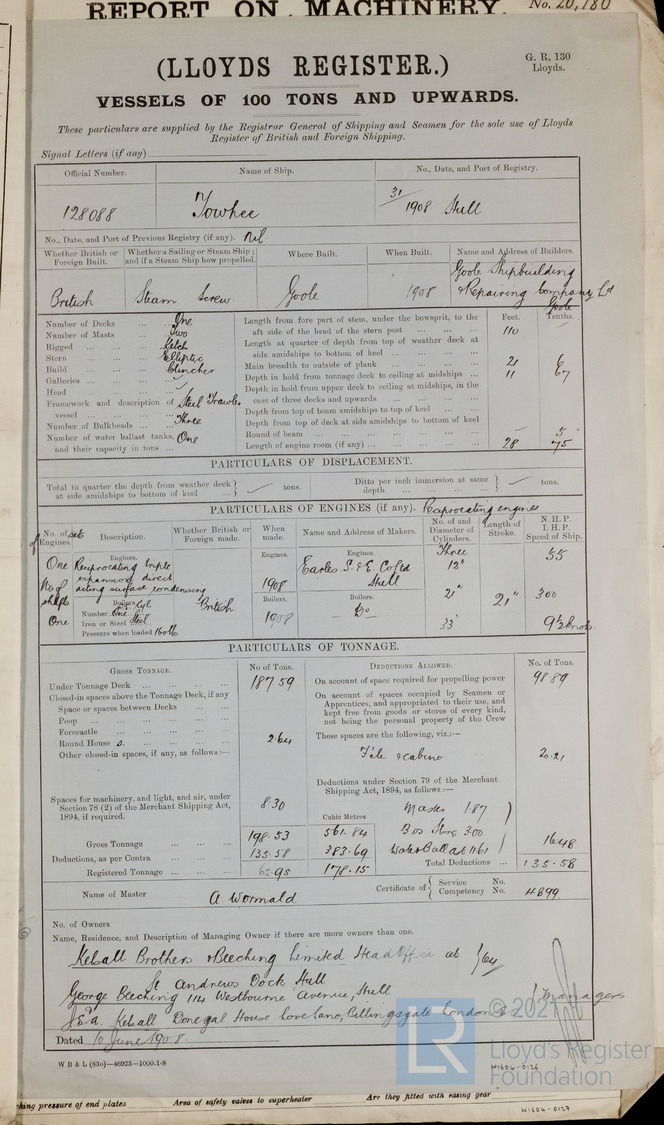 REPORT ON MACHINERY. No. 20,180
(LLOYDS REGISTER.)
G. R. 130
Lloyds.
VESSELS OF 100 TONS AND UPWARDS.
These particulars are supplied by the Registrar General of Shipping and Seamen for the sole use of Lloyds
Register of British and Foreign Shipping.
Signal Letters (if any)
Official Number. Name of Ship. No., Date, and Port of Registry.
128088 Towhee 31/1908 Hull
No., Date, and Port of Previous Registry (if any). Nil
Whether British or Foreign Built. Whether a Sailing or Steam Ship; and if a Steam Ship how propelled. Where Built. When Built. Name and Address of Builders.
British Steam Screw Goole 1908 Goole Shipbuilding & Repairing Company Ld Goole
Number of Decks ... ... One
Number of Masts ... ... Two
Rigged ... ... Ketch
Stern ... ... Elliptic
Build ... ... Clincher
Galleries ... ...
Head ... ...
Framework and description of vessel ... ... Steel Trawler
Number of Bulkheads ... ... Three
Number of water ballast tanks, and their capacity in tons ... One
Feet. Tenths.
Length from fore part of stem, under the bowsprit, to the aft side of the head of the stern post ... ... 110
Length at quarter of depth from top of weather deck at side amidships to bottom of keel ... ...
Main breadth to outside of plank ... ... 21 6
Depth in hold from tonnage deck to ceiling at midships ... 11 67
Depth in hold from upper deck to ceiling at midships, in the case of three decks and upwards ... ...
Depth from top of beam amidships to top of keel ... ...
Depth from top of deck at side amidships to bottom of keel
Round of beam ... ... - 5
Length of engine room (if any) ... ... 28 75
PARTICULARS OF DISPLACEMENT.
Total to quarter the depth from weather deck at side amidships to bottom of keel ... tons. Ditto per inch immersion at same depth ... tons.
PARTICULARS OF ENGINES (if any). Reciprocating engines
No. of sets of Engines. Description. Whether British or Foreign made. When made. Name and Address of Makers. No. of and Diameter of Cylinders. Length of Stroke. N.H.P. I.H.P. Speed of Ship.
One Engines. Reciprocating triple expansion direct acting surface condensing Engines. 1908 Engines. Earles S. & E. Co Ld Hull Three 12" 55
No of shafts One British 21" 21" 300
Boilers. Cyl. Number One Iron or Steel Steel Pressure when loaded 180 lb Boilers. 1908 Boilers. Do 33 9½ knots.
PARTICULARS OF TONNAGE.
GROSS TONNAGE. No of Tons. DEDUCTIONS ALLOWED. No. of Tons.
Under Tonnage Deck ... ... 187.59
Closed-in spaces above the Tonnage Deck, if any
Space or spaces between Decks ... ...
Poop ... ...
Forecastle ... ...
Round House s. ... ... 2.64
Other closed-in spaces, if any, as follows:—
Spaces for machinery, and light, and air, under Section 78 (2) of the Merchant Shipping Act, 1894, if required. 8.30
Cubic Metres
Gross Tonnage ... ... 198.53 561.84
Deductions, as per Contra ... ... 135.58 383.69
Registered Tonnage ... ... 62.95 178.15
On account of space required for propelling power 98.89
On account of spaces occupied by Seamen or Apprentices, and appropriated to their use, and kept free from goods or stores of every kind, not being the personal property of the Crew
These spaces are the following, viz.:—
F'cle & cabins 20.21
Deductions under Section 79 of the Merchant Shipping Act, 1894, as follows:—
Master 1.87
Bos Store 3.00
Water Ballast 11.61 16.48
Total Deductions ... 135.58
Name of Master A Wormald Certificate of Service No. Competency No. 4899
No. of Owners
Name, Residence, and Description of Managing Owner if there are more owners than one.
Kelsall Brothers & Beeching Limited Head Office at 64
St Andrews Dock, Hull
George Beeching 114 Westbourne Avenue, Hull
Kelsall Donegal House Love Lane, Billingsgate London E.C. Managers
Dated 10 June 1908.
W B & L (83o)—46923—1000-1-8
© 2021
LR
Lloyd's Register
Foundation
W1604-0126
king pressure of end plates Area of safety valves to superheater Are they fitted with easing gear
W1604-0127